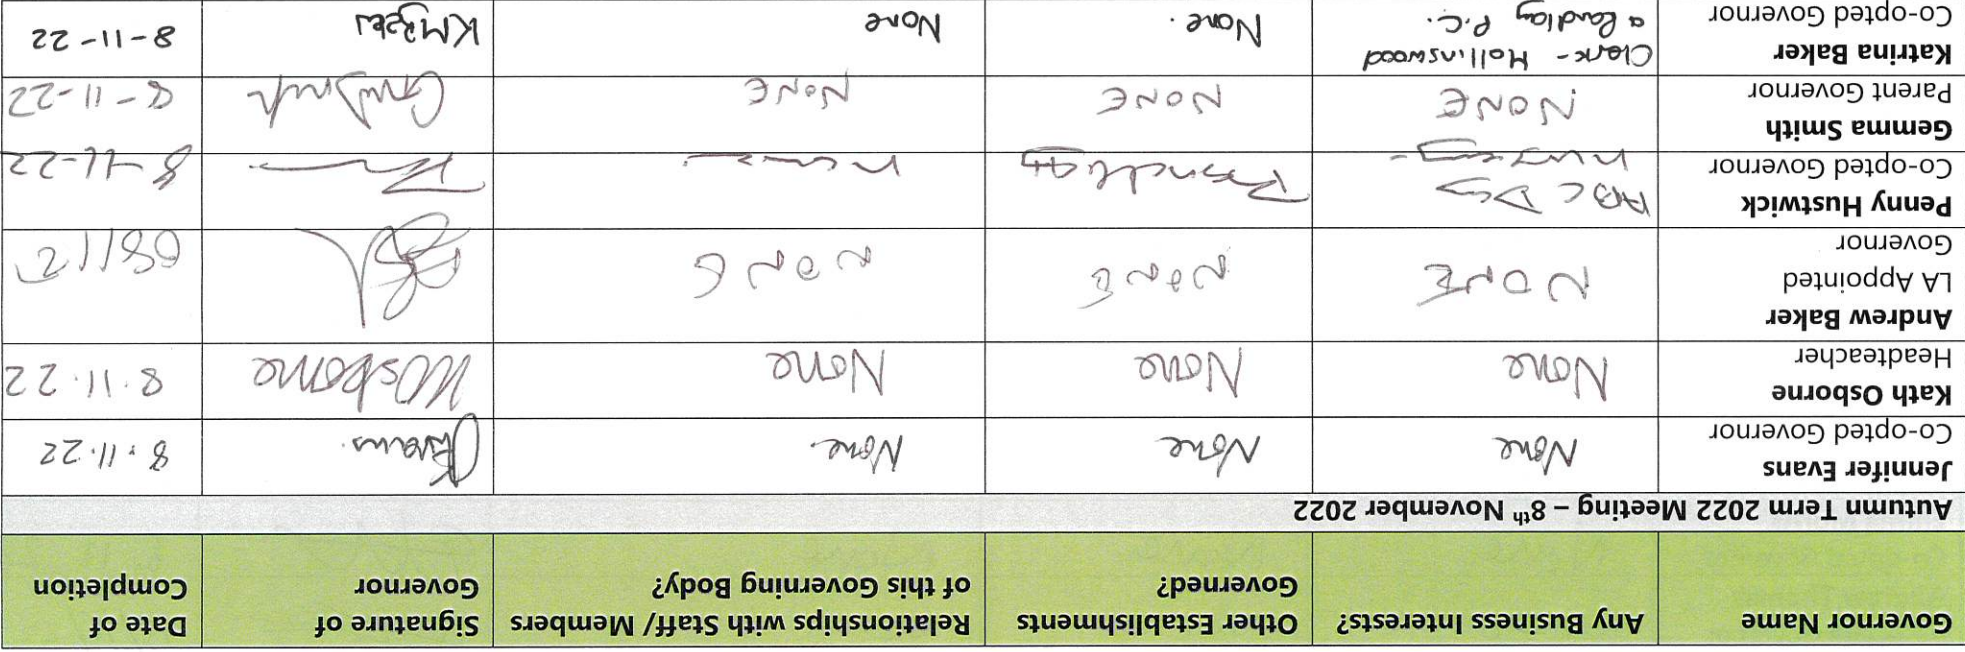 Governor Name
Any Business Interests?
Other Establishments
Governed?
Relationships with Staff/ Members
of this Governing Body?
Signature of
Governor
Date of
Completion
Autumn Term 2022 Meeting – 8th November 2022
Jennifer Evans
Co-opted Governor
None
None
None.
JEvans.
8.11.22
Kath Osborne
Headteacher
None
None
None
KOsborne
8.11.22
Andrew Baker
LA Appointed
Governor
NONE
NONE
NONE
Penny Hustwick
Co-opted Governor
ABC Day
nursery
none
8-11-22
Gemma Smith
Parent Governor
NONE
NONE
NONE
GSmith
8-11-22
Katrina Baker
Co-opted Governor
Clerk - Hollinswood
& Randlay P.C.
None.
None
KMBaker
8-11-22